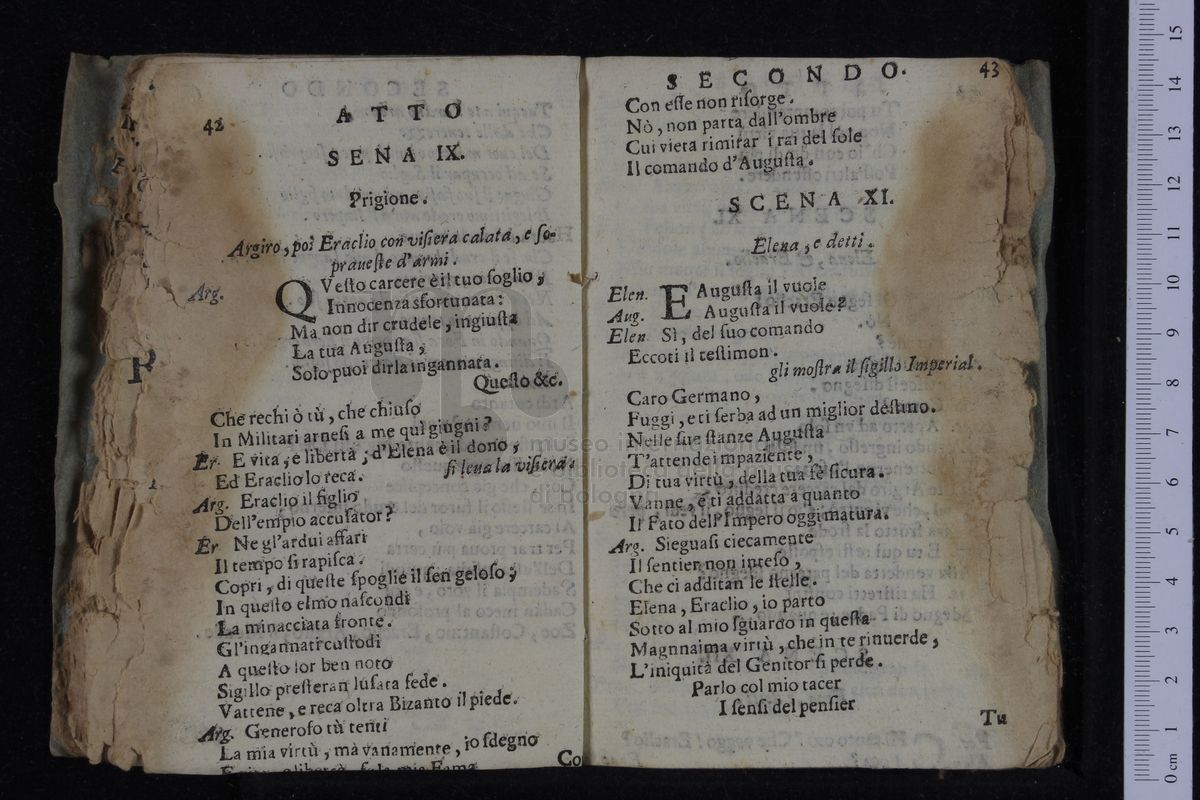 42
ATTO
SENA IX.
Prigione.
Argiro, poi Eraclio con visiera calata, e so-
praueste d'armi.
Arg. QVesto carcere è il tuo soglio,
Innocenza sfortunata:
Ma non dir crudele, ingiusta
La tua Augusta,
Solo puoi dirla ingannata.
Questo &c.
Che rechi ò tù, che chiuso
In Militari arnesi a me quì giugni?
Er. E vita, e libertà; d'Elena è il dono,
Ed Eraclio lo reca. si leua la visiera.
Arg. Eraclio il figlio
Dell'empio accusator?
Er Ne gl'ardui affari
Il tempo si rapisca.
Copri, di queste spoglie il sen geloso;
In questo elmo nascondi
La minacciata fronte.
Gl'ingannati custodi
A questo lor ben noto
Sigillo presteran l'usata fede.
Vattene, e reca oltra Bizanto il piede.
Arg. Generoso tù tenti
La mia virtù, mà vanamente, io sdegno
Co
SECONDO. 43
Con esse non risorge.
Nò, non parta dall'ombre
Cui vieta rimirar i rai del sole
Il comando d'Augusta.
SCENA XI.
Elena, e detti.
Elen. E Augusta il vuole
Aug. Augusta il vuole?
Elen Sì, del suo comando
Eccoti il testimon.
gli mostra il sigillo Imperial.
Caro Germano,
Fuggi, e ti serba ad un miglior destino.
Nelle sue stanze Augusta
T'attende impaziente,
Di tua virtù, della tua fè sicura.
Vanne, e ti addatta a quanto
Il Fato dell'Impero oggi matura.
Arg. Sieguasi ciecamente
Il sentier non inteso,
Che ci additan le stelle.
Elena, Eraclio, io parto
Sotto al mio sguardo in questa
Magnnaima virtù, che in te rinuerde,
L'iniquità del Genitor si perde.
Parlo col mio tacer
I sensi del pensier
Tu
museo internazionale
biblioteca della musica
di bologna